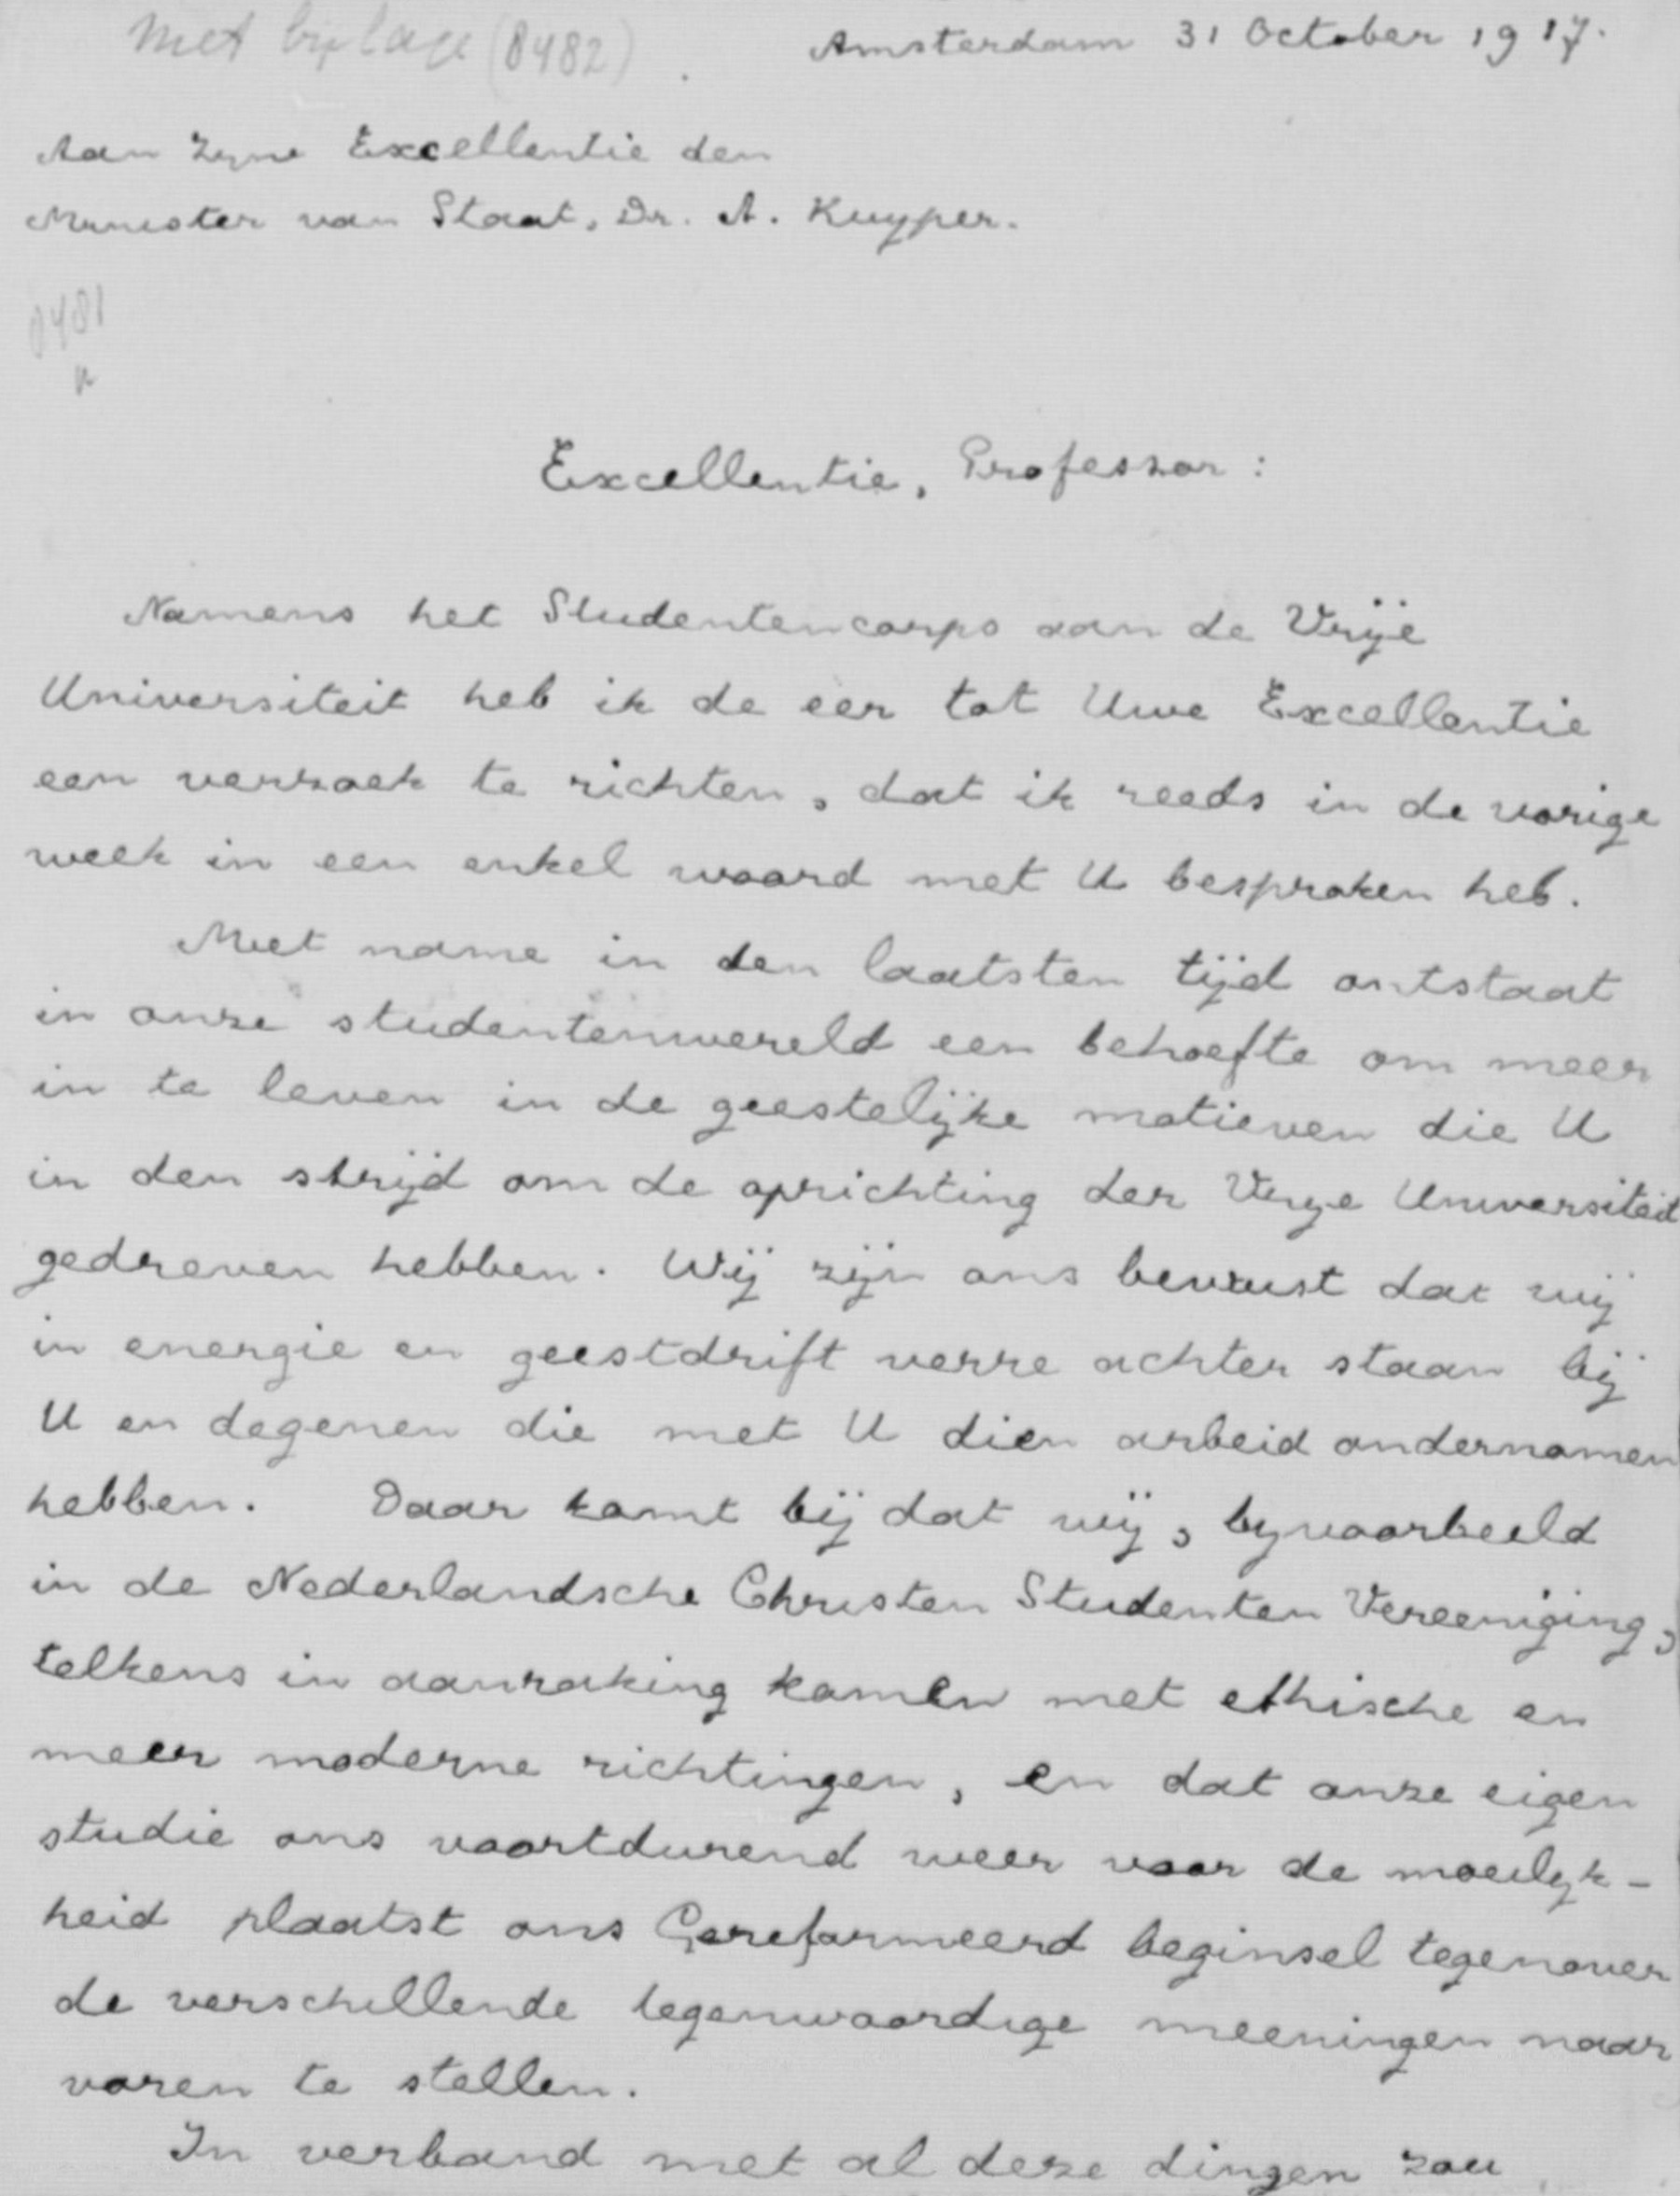 Met bijlage (8482)
Amsterdam 31 October 1917.
Aan Zyne Excellentie den
Minister van Staat, Dr. A. Kuyper.
8481
Excellentie, Professor:
Namens het Studentencorps aan de Vrije
Universiteit heb ik de eer tot Uwe Excellentie
een verzoek te richten, dat ik reeds in de vorige
week in een enkel woord met U besproken heb.
Met name in den laatsten tijd ontstaat
in onze studentenwereld een behoefte om meer
in te leven in de geestelijke motieven die U
in den strijd om de oprichting der Vrye Universiteit
gedreven hebben. Wij zijn ons bewust dat wij
in energie en geestdrift verre achter staan bij
U en degenen die met U dien arbeid ondernomen
hebben. Daar komt bij dat wij, byvoorbeeld
in de Nederlandsche Christen Studenten Vereeniging,
telkens in aanraking komen met ethische en
meer moderne richtingen, en dat onze eigen
studie ons voortdurend weer voor de moeilyk-
heid plaatst ons Gereformeerd beginsel tegenover
de verschillende tegenwoordige meeningen naar
voren te stellen.
In verband met al deze dingen zou